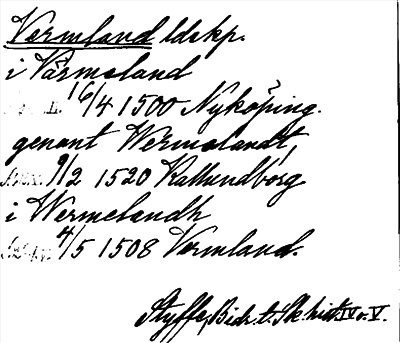 Vermland ldskp.
i Värmeland
16/4 1500 Nyköping.
genant Wermelandt,
9/2 1520 Kallundborg
i Wermelandh
4/5 1508 Vermland.
Styffe, Bidr. t. Sk. hist. IV o. V.